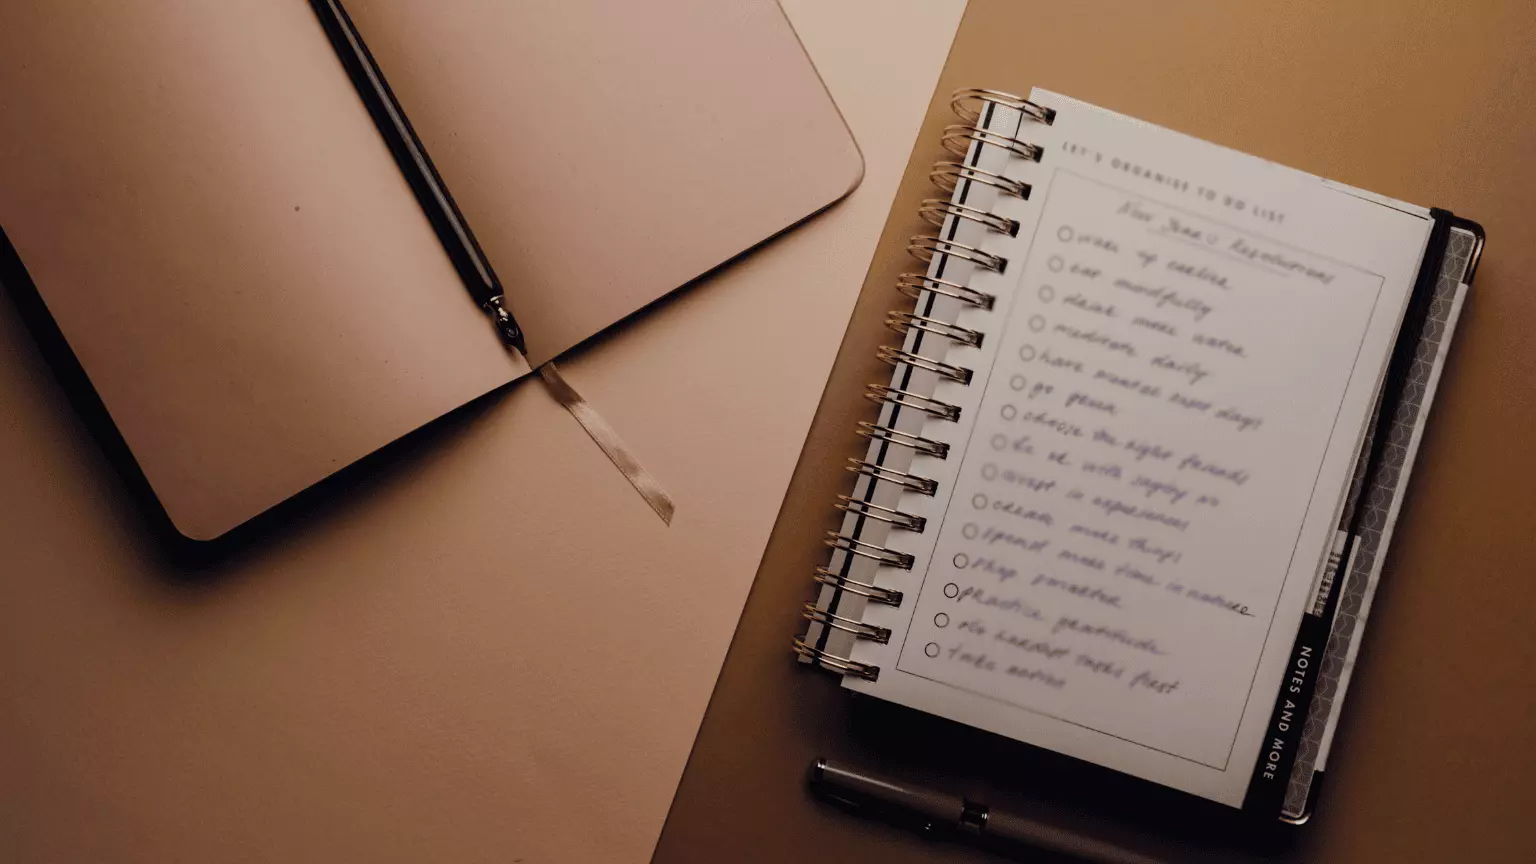 LET'S ORGANISE TO DO LIST
New Year's Resolutions
wake up earlier
eat mindfully
drink more water
meditate daily
have months days
go
choose the right friends
be ok with saying no
invest in experiences
create more things
spend more time in nature
shop smarter
practice gratitude
do hardest tasks first
take action
NOTES AND MORE